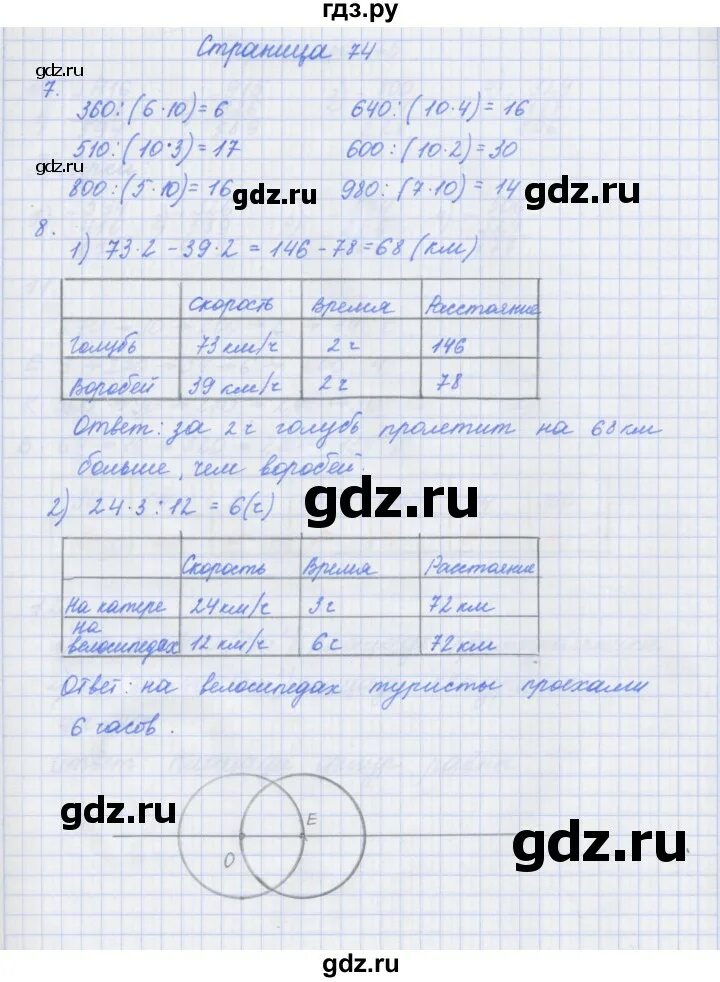 гдз.ру
Страница 74
gdz.ru
7.
360:(6·10)=6 640:(10·4)=16
510:(10·3)=17 600:(10·2)=30
gdz.ru
800:(5·10)=16 980:(7·10)=14
gdz.ru gdz.ru
8.
1) 73·2-39·2=146-78=68 (км)
Скорость Время Расстояние
Голубь 73 км/ч 2 ч 146
Воробей 39 км/ч 2 ч 78
Ответ: за 2 ч голубь пролетит на 68 км
больше, чем воробей.
gdz.ru
2) 24·3:12=6(ч)
Скорость Время Расстояние
На катере 24 км/ч 3 ч 72 км
На велосипедах 12 км/ч 6 ч 72 км
Ответ: на велосипедах туристы проехали
6 часов.
gdz.ru
O E
gdz.ru
gdz.ru